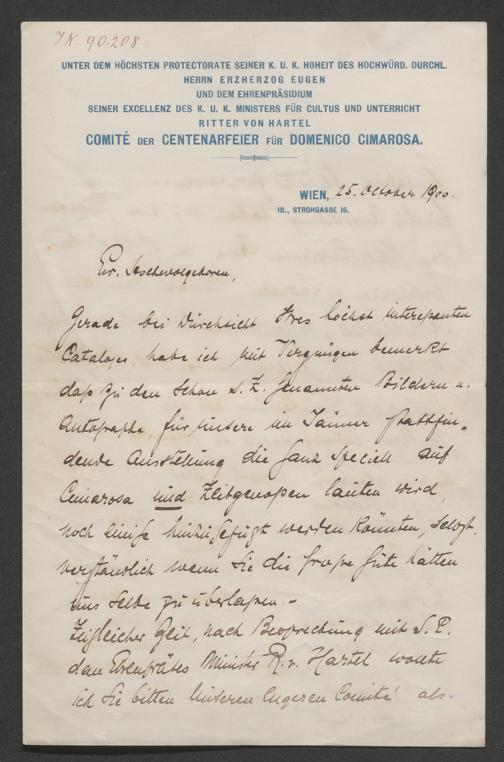 IN. 90.208
UNTER DEM HÖCHSTEN PROTECTORATE SEINER K. U. K. HOHEIT DES HOCHWÜRD. DURCHL.
HERRN ERZHERZOG EUGEN
UND DEM EHRENPRÄSIDIUM
SEINER EXCELLENZ DES K. U. K. MINISTERS FÜR CULTUS UND UNTERRICHT
RITTER VON HARTEL
COMITÉ DER CENTENARFEIER FÜR DOMENICO CIMAROSA.
WIEN, 25. October 1900.
III., STROHGASSE 16.
Ew. Hochwolgeboren,
Gerade bei Durchsicht Ihres höchst interessanten
Cataloges, habe ich mit Vergnügen bemerkt
daß zu den schon s. Z. genannten Bildern u.
Autographe, für unsere im Jänner stattfin-
dende Ausstellung die ganz speciell auf
Cimarosa und Zeitgenoßen lauten wird,
noch einige hinzugefügt werden könnten, selbst-
verständlich wenn Sie die große Güte hätten
uns selbe zu überlaßen. -
Zugleicher Zeit, nach Besprechung mit S. E.
dem Minister R. v. Hartel wollte
ich Sie bitten unseren engeren Comité als